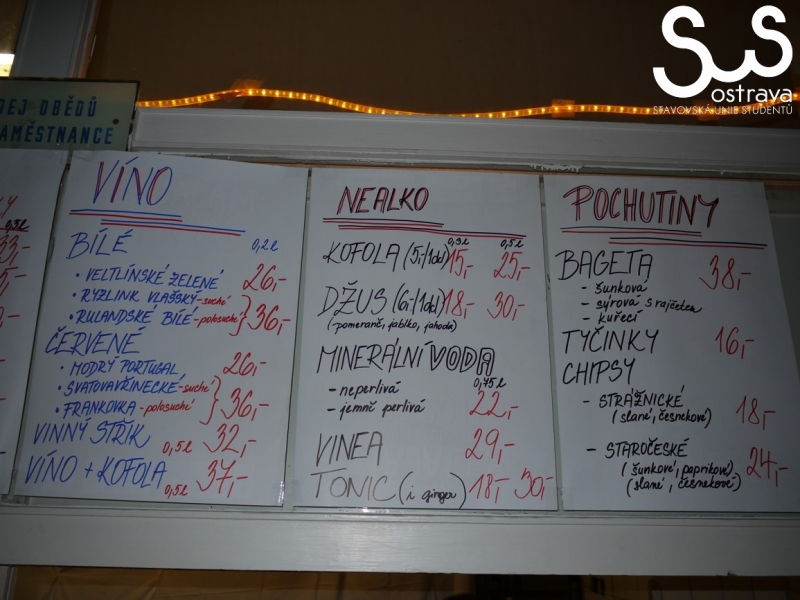 SUS
ostrava
STAVOVSKÁ UNIE STUDENTŮ
DEJ OBĚDŮ
AMĚSTNANCE
0,3l
33,-
5,-
VÍNO
BÍLÉ 0,2l
• VELTLÍNSKÉ ZELENÉ 26,-
• RYZLINK VLAŠSKÝ - suché
• RULANDSKÉ BÍLÉ - polosuché } 36,-
ČERVENÉ
• MODRÝ PORTUGAL 26,-
• SVATOVAVŘINECKÉ - suché
• FRANKOVKA - polosuché } 36,-
VINNÝ STŘIK 0,5l 32,-
VÍNO + KOFOLA 0,5l 37,-
NEALKO
0,3l 0,5l
KOFOLA (5,-/1dcl) 15,- 25,-
DŽUS (6,-/1dcl) 18,- 30,-
(pomeranč, jablko, jahoda)
MINERÁLNÍ VODA
- neperlivá 0,75l
- jemně perlivá 22,-
VINEA 29,-
TONIC (i ginger) 18,- 30,-
POCHUTINY
BAGETA 38,-
- šunková
- sýrová s rajčetem
- kuřecí
TYČINKY 16,-
CHIPSY
- STRÁŽNICKÉ
(slané, česnekové) 18,-
- STAROČESKÉ 24,-
(šunkové, paprikové)
(slané, česnekové)